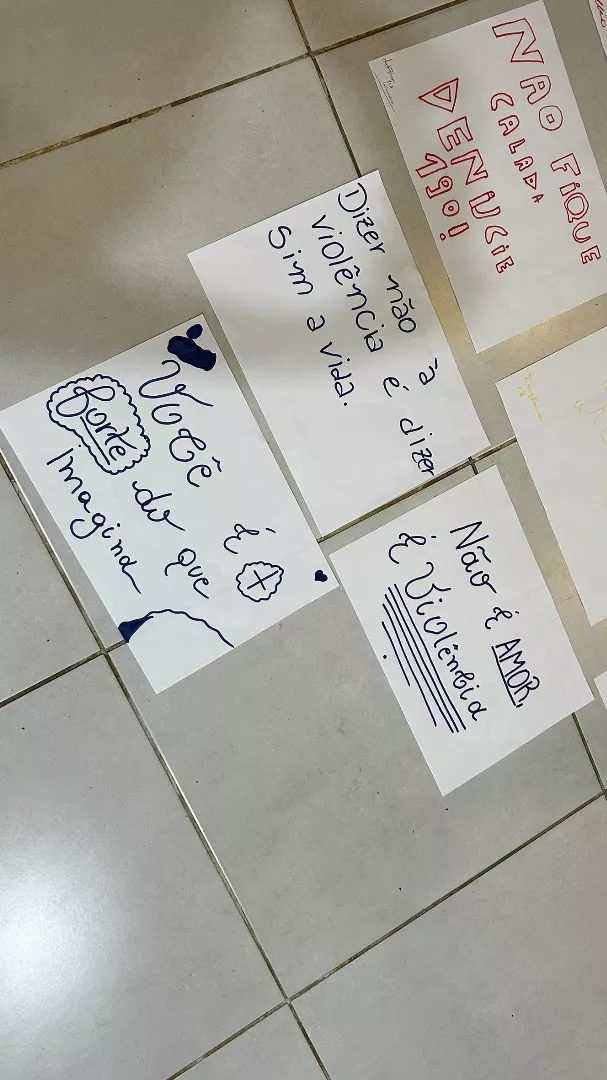 NAO FIQUE
CALADA
DENUCIE
190!
Dizer não à
violência é dizer
Sim a vida.
Você é +
forte do que
imagina
Não é AMOR,
é Violêmbia